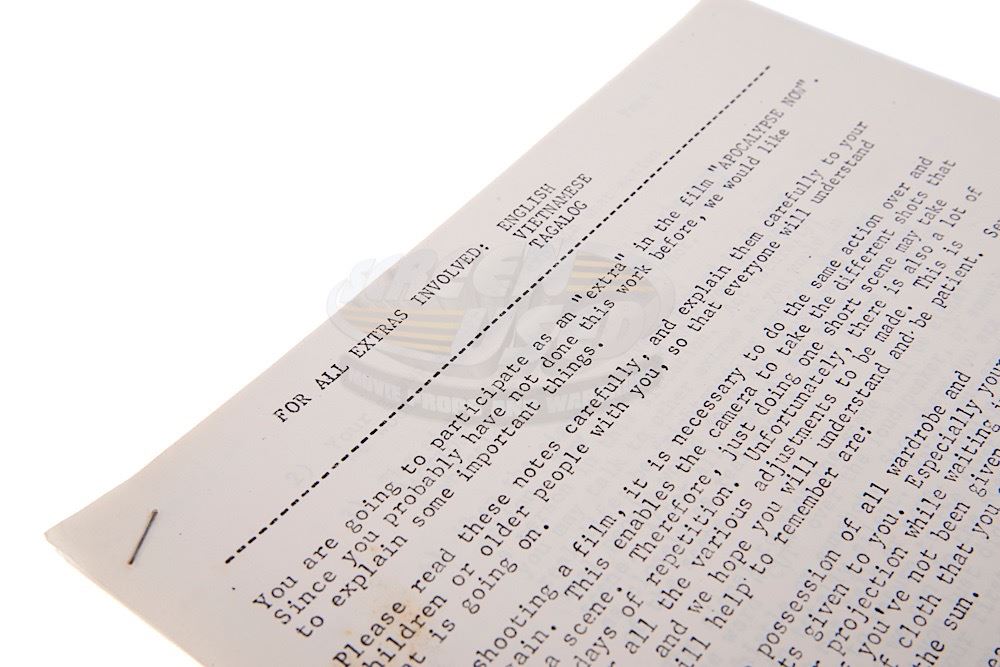 FOR ALL EXTRAS INVOLVED: ENGLISH
VIETNAMESE
TAGALOG
You are going to participate as an "extra" in the film "APOCALYPSE NOW".
Since you probably have not done this work before, we would like
to explain some important things.
Please read these notes carefully, and explain them carefully to your
children or older people with you, so that everyone will understand
is going on.
shooting a film, it is necessary to do the same action over and
This enables the camera to take the different shots that
a scene. Therefore, just doing one short scene may take
days of repetition. Unfortunately, there is also a lot of
all the various adjustments to be made. This is
and we hope you will understand and be patient.
help to remember are:
possession of all wardrobe and
given to you. Especially your
projection while waiting
you've not been given
of cloth that you
the sun.
SCREEN
USED
MOVIE PROPS AND WARDROBE